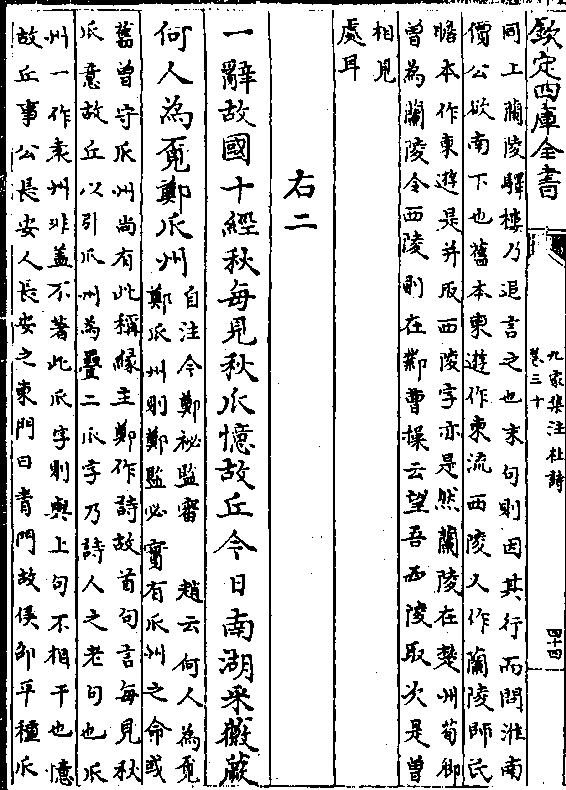 欽定四庫全書
九家集注杜詩
卷三十
四十四
同上蘭陵驛樓乃追言之也末句則因其行而問淮南
價公欲南下也舊本東遊作東流西陵又作蘭陵師民
瞻本作東遊是并取西陵字亦是然蘭陵在楚州荀卿
曾為蘭陵令西陵則在鄴曹操云望吾西陵取次是曾
相見
處耳
右二
一辭故國十經秋每見秋瓜憶故丘今日南湖采薇蕨
何人為覓鄭瓜州自注今鄭秘監審
鄭瓜州則鄭監必實有瓜州之命或
趙云何人為覓
舊曾守瓜州尚有此稱緣主鄭作詩故首句言每見秋
瓜意故丘以引瓜州為疊二瓜字乃詩人之老句也瓜
州一作袁州非蓋不著此瓜字則與上句不相干也憶
故丘事公長安人長安之東門曰青門故侯邵平種瓜